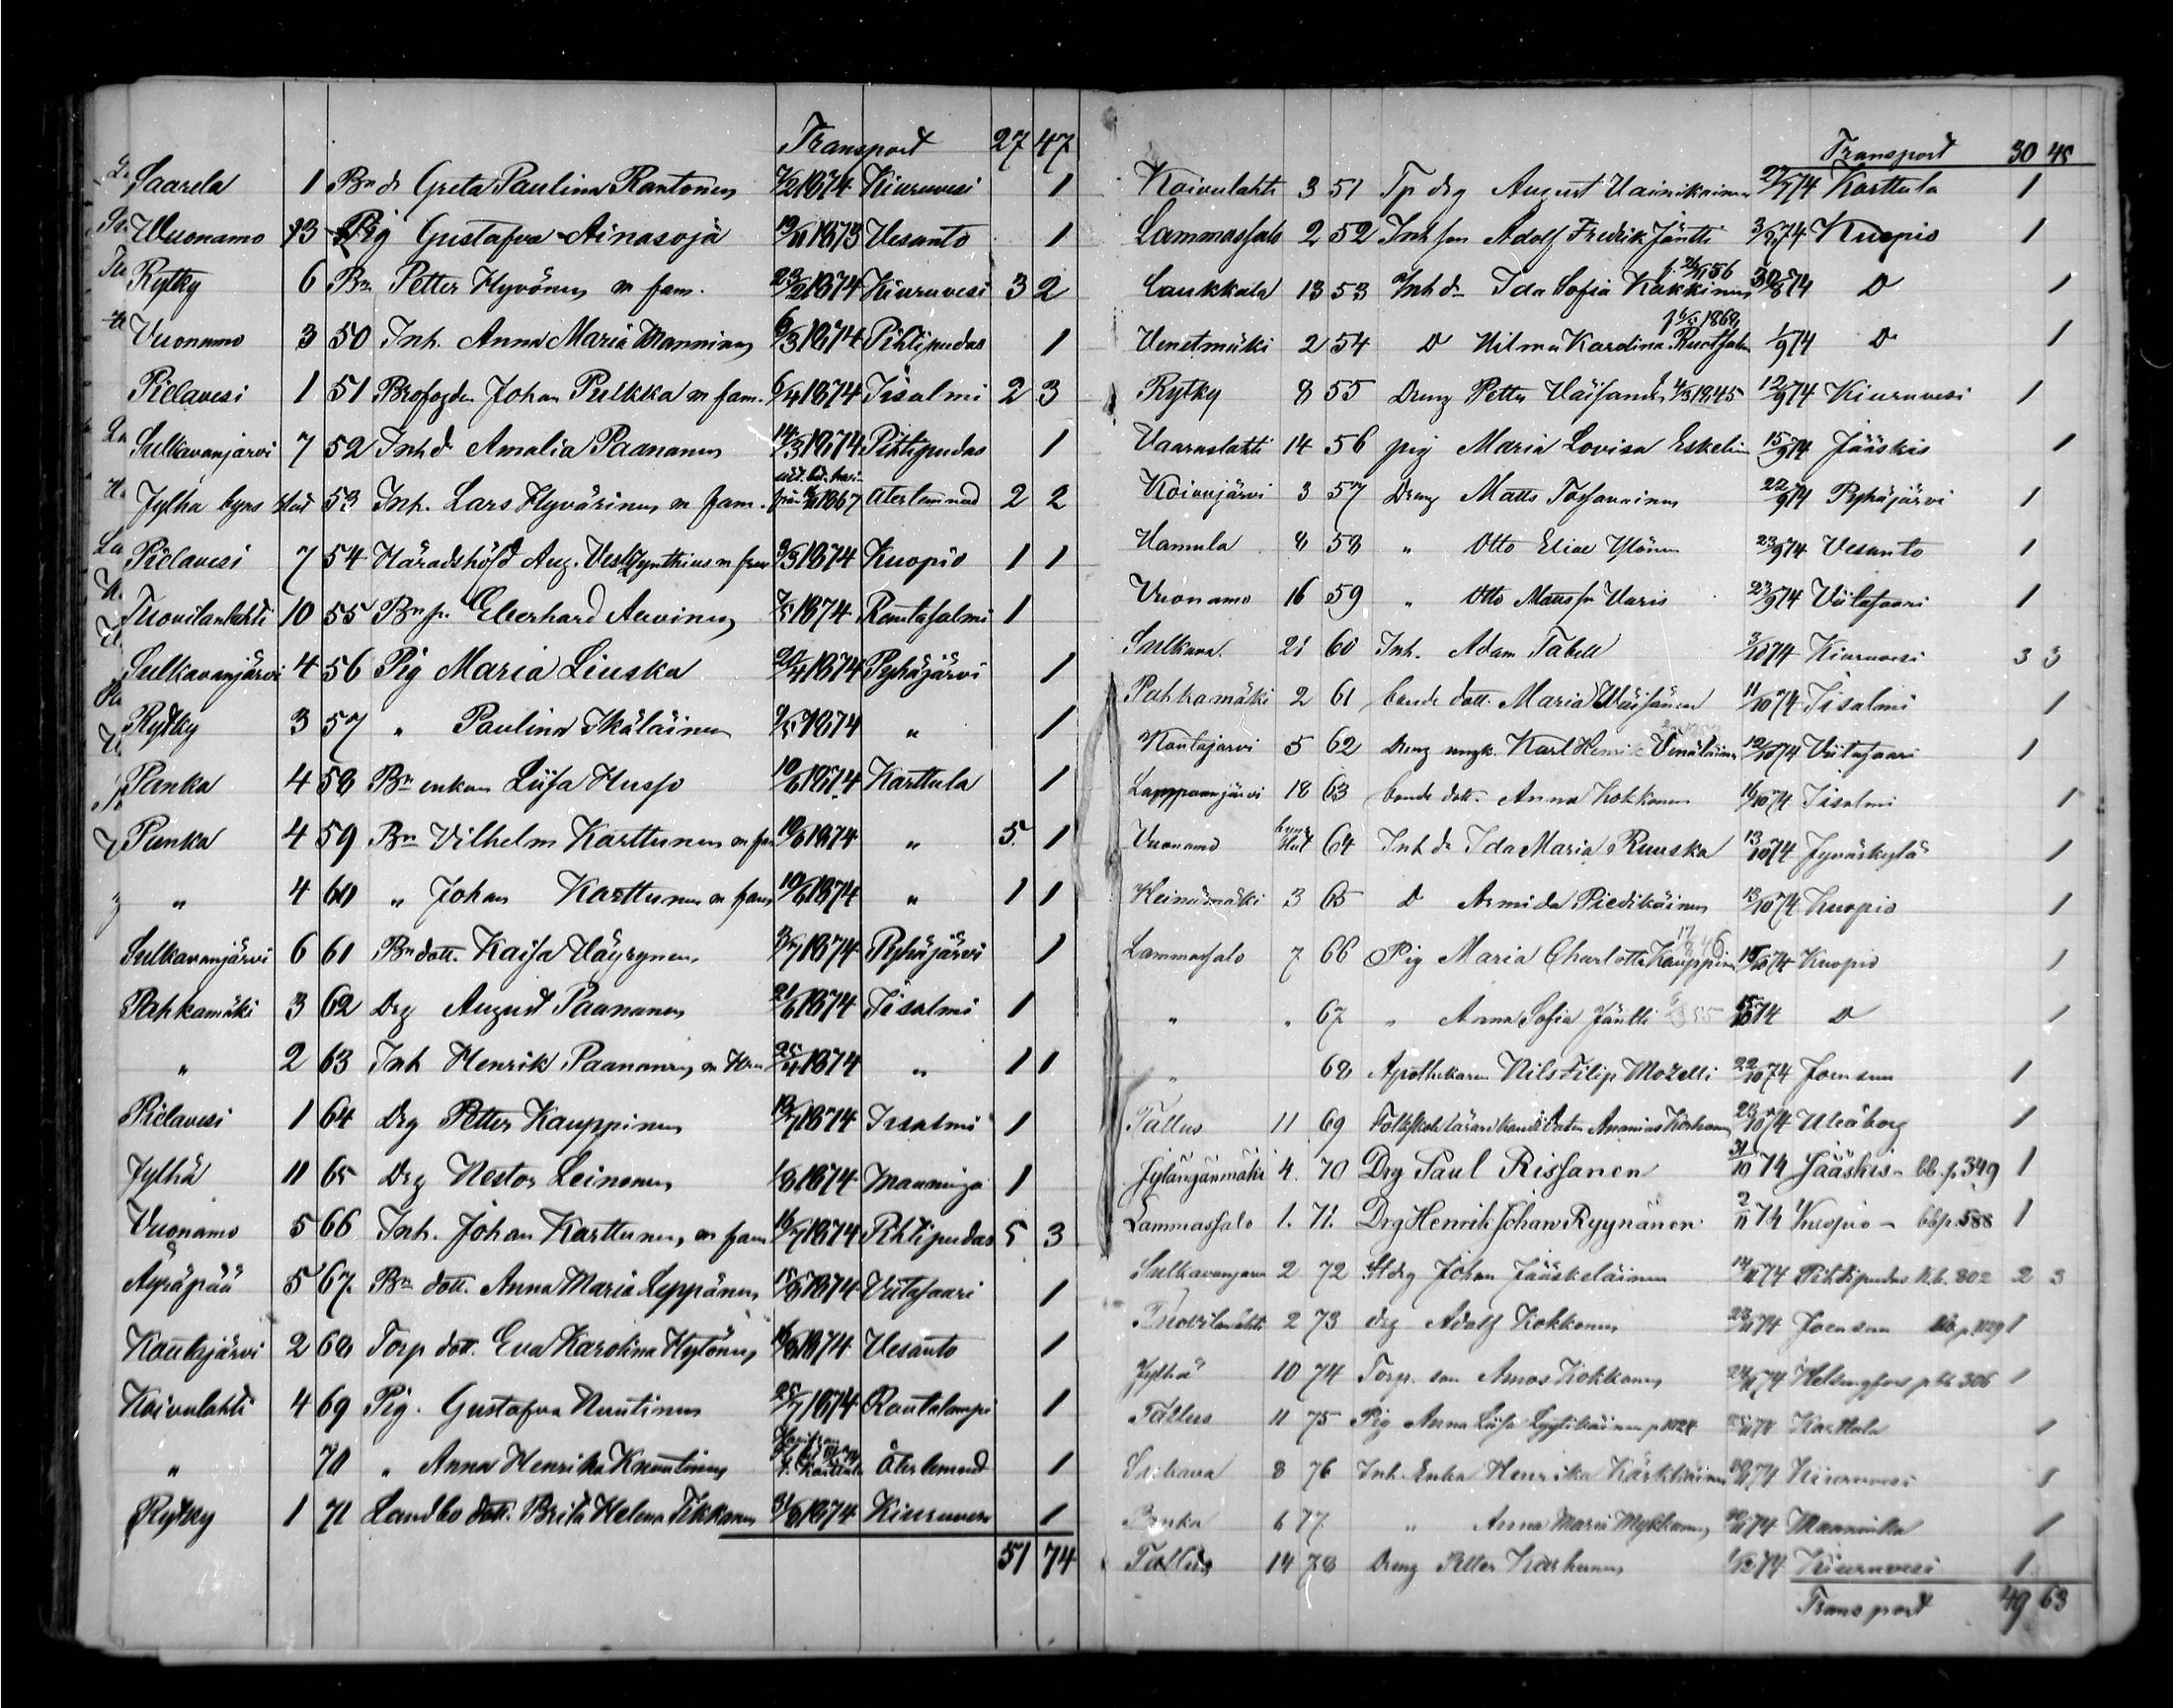 Transport 27 47
Saarela 1 Bn dr Greta Paulina Rautonen 7/2 1874 Kiuruvesi 1
Wuonamo 13 Pig Gustafva Ainasoja 1873 Vesanto 1
Rytky 6 Bn Petter Hyvönen m fam. 23/2 1874 Kiuruvesi 3 2
Vuonamo 3 50 Inh. Anna Maria Manninen 6/3 1874 Pihtipudas 1
Pielavesi 1 51 Brofogden Johan Pulkka m fam. 6/4 1874 Iisalmi 2 3
Sulkavanjärvi 7 52 Inh dr Amalia Paananen 14/3 1874 Pihtipudas 1
Jylhä byns Hus 53 Inh. Lars Hyvärinen m fam. 1867 Återlemnad 2 2
Pielavesi 7 54 Häradshöfd Aug. Zynthius m fru 9/3 1874 Kuopio 1 1
Tuovilanlahti 10 55 Bn fr. Eberhard Auvinen 7/5 1874 Rautasalmi 1
Sulkavanjärvi 4 56 Pig Maria Liuska 20/4 1874 Pyhäjärvi 1
Rytky 3 57 " Paulina Ikäläinen 9/5 1874 " 1
Panka 4 58 Bn enkan Liisa Husso 10/6 1874 Karttula 1
Panka 4 59 Bn Vilhelm Karttunen m fam 10/6 1874 " 5. 1
" 4 60 " Johan Karttunen m fam 10/6 1874 " 1 1
Sulkavanjärvi 6 61 Bn dott. Kaisa Väyrynen 3/7 1874 Pyhäjärvi 1
Pahkamäki 3 62 Drg August Paananen 21/6 1874 Iisalmi 1
" 2 63 Inh Henrik Paananen m Hru 25/4 1874 " 1 1
Pielavesi 1 64 Drg Petter Kauppinen 1874 Iisalmi 1
Jylhä 11 65 Drg Nestor Leinonen 1/8 1874 Maaninga 1
Vuonamo 5 66 Inh. Johan Karttunen, m fam 16/7 1874 Pihtipudas 5 3
Äyräpää 5 67. Bn dott. Anna Maria Leppänen 1874 Viitasaari 1
Koutajärvi 2 68 Torp dott. Eva Karolina Hytönen 1874 Vesanto 1
Koivulahti 4 69 Pig. Gustafva Nuutinen 25/7 1874 Rautalampi 1
" 70 " Anna Henrika Knuutinen Återlemnad 1
Rytky 1 71 Landbo dott. Brita Helena Tikkanen 31/8 1874 Kiuruvesi 1
51 74
Transport 30 48
Koivulahti 3 51 Tp drg August Vainikainen 27/7 74 Karttula 1
Lammassalo 2 52 Inh son Adolf Fredrik Jäntti 3/8 74 Kuopio 1
Laukkala 13 53 Inh dr Ida Sofia Kakkinen 30/8 74 D 1
Venetmäki 2 54 D Vilma Karolina Ruotsal 1/9 74 D 1
Rytky 8 55 Dreng Petter Väisänen 1845 12/9 74 Kiuruvesi 1
Vaaraslahti 14 56 pig Maria Lovisa Eskelin 15/9 74 Jääskis 1
Koivujärvi 3 57 Dreng Matts Tossavainen 22/9 74 Pyhäjärvi 1
Hamula 8 58 " Otto Elias Ylönen 23/9 74 Vesanto 1
Vuonamo 16 59 " Otto Mattsson Varis 23/9 74 Viitasaari 1
Sulkava 21 60 Inh. Adam Tabell 3/10 74 Kiuruvesi 3 3
Pahkamäki 2 61 bonde dott. Maria Väisänen 11/10 74 Iisalmi 1
Koutajärvi 5 62 Dreng Karl Henrik Venäläinen 12/10 74 Viitasaari 1
Lapppanjärvi 18 63 bonde dott. Anna Kokkonen 16/10 74 Iisalmi 1
Vuonamo byns Hus 64 Inh dr Ida Maria Ruuska 13/10 74 Jyväskylä 1
Heinämäki 3 65 D Armida Piedikäinen 13/10 74 Kuopio 1
Lammassalo 7 66 Pig Maria Charlotta Kauppinen 74 Kuopio 1
" " 67 " Anna Sofia Jäntti 15/10 74 D 1
" 68 Apothekaren Nils Filip Mozelli 22/10 74 Joensuu 1
Tallus 11 69 Folkskolelärarekandidaten Ananias Korhonen 23/10 74 Uleåborg 1
Jylängänmäki 4. 70 Drg Paul Rissanen 31/10 74 Jääskis - bb. p. 349 1
Lammassalo 1. 71. Drg Henrik Johan Ryynänen 2/11 74 Kuopio - bb p. 588 1
Sulkavanjärvi 2 72 Stdrg Johan Jääskeläinen 74 Pihtipudas k.b. 802 2 3
Tuovilanlahti 2 73 drg Adolf Kokkonen 23/11 74 Joensuu bb p. 1129 1
Jylhä 10 74 Torp. son Amos Kokkonen 24/11 74 Helsingfors p bb 306 1
Tallus 11 75 Pig Anna Liisa Lyytikäinen p 1024 74 Karttula 1
Saihava 8 76 Inh. Enka Henrika Kärkkäinen 74 Kiuruvesi 1
Panka 6 77. " Anna Maria Mykkänen 74 Maaninka 1
Tallus 14 78 Dreng Petter Korhonen 1/12 74 Kiuruvesi 1
Transport 49 63